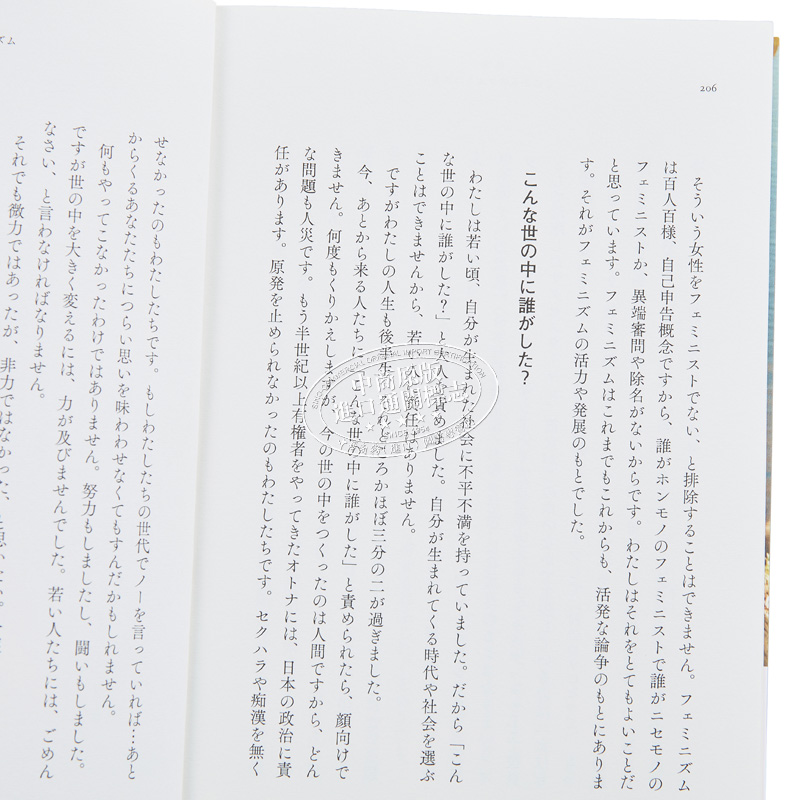 206
そういう女性をフェミニストでない、と排除することはできません。フェミニズム
は百人百様、自己申告概念ですから、誰がホンモノのフェミニストで誰がニセモノの
フェミニストか、異端審問や除名がないからです。わたしはそれをとてもよいことだ
と思っています。フェミニズムはこれまでもこれからも、活発な論争のもとにありま
す。それがフェミニズムの活力や発展のもとでした。
こんな世の中に誰がした?
わたしは若い頃、自分が生まれた社会に不平不満を持っていました。だから「こん
な世の中に誰がした?」と大人を責めました。自分が生まれてくる時代や社会を選ぶ
ことはできませんから、若い人に責任はありません。
ですがわたしの人生も後半生、それどころかほぼ三分の二が過ぎました。
今、あとから来る人たちに、「こんな世の中に誰がした」と責められたら、顔向けで
きません。何度もくりかえしますが、今の世の中をつくったのは人間ですから、どん
な問題も人災です。もう半世紀以上有権者をやってきたオトナには、日本の政治に責
任があります。原発を止められなかったのもわたしたちです。セクハラや痴漢を無く
ズム
せなかったのもわたしたちです。もしわたしたちの世代でノーを言っていれば…あと
からくるあなたたちにつらい思いを味わわせなくてもすんだかもしれません。
何もやってこなかったわけではありません。努力もしましたし、闘いもしました。
ですが世の中を大きく変えるには、力が及びませんでした。若い人たちには、ごめん
なさい、と言わなければなりません。
それでも微力ではあったが、非力ではなかった、と思い
中商原版
進口通關標誌
SINCE 1954